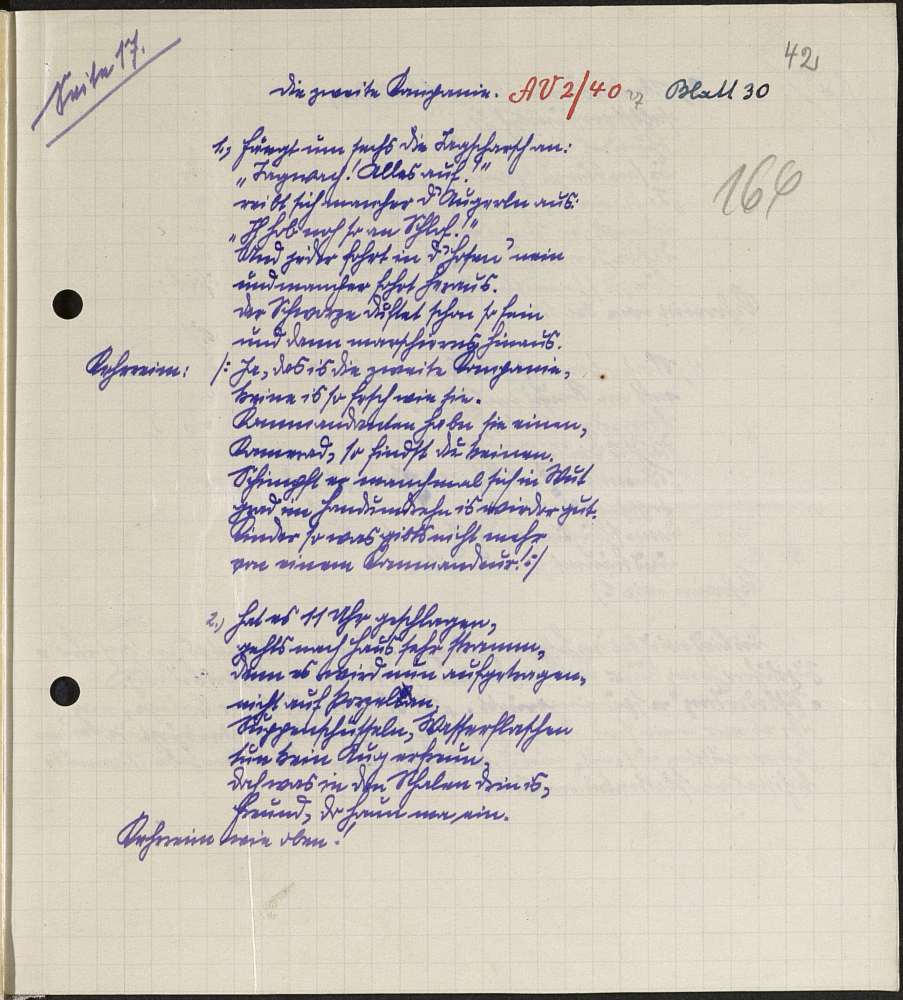 Seite 17.
42
Die zweite Kompanie. AV 2/40 Blatt 30
166
1.) Fängt um sechs die Tagscharsch an:
"Tagwach! Alles auf!"
reibt sich mancher d'Äugerln aus:
"Ih hab noch so an Schlaf!"
Und jeder fahrt in d'Hosen nein
und mancher fahrt heraus.
der Schwarze duftet schon so fein
und dann marschierns hinaus.
Kehrreim: /: Ja, das is die zweite Kompanie,
keine is so fesch wie sie.
Kommandanten habn sie einen,
Kamerad, so findst du keinen.
Schimpft er manchmal sich in Wut
grad im Handumdrehn is wieder gut.
Kinder so was gibts nicht mehr
von einem Kommandeur! :/
2.) Hat es 11 Uhr geschlagen,
gehts nach Haus sehr stramm,
denn es wird nun aufgetragen,
nicht auf Porzellan,
Suppenschüsseln, Wasserflaschen
tun kein Aug erfreun,
doch was in den Schalen drin is,
Freund, da haun ma ein.
Kehrreim wie oben!